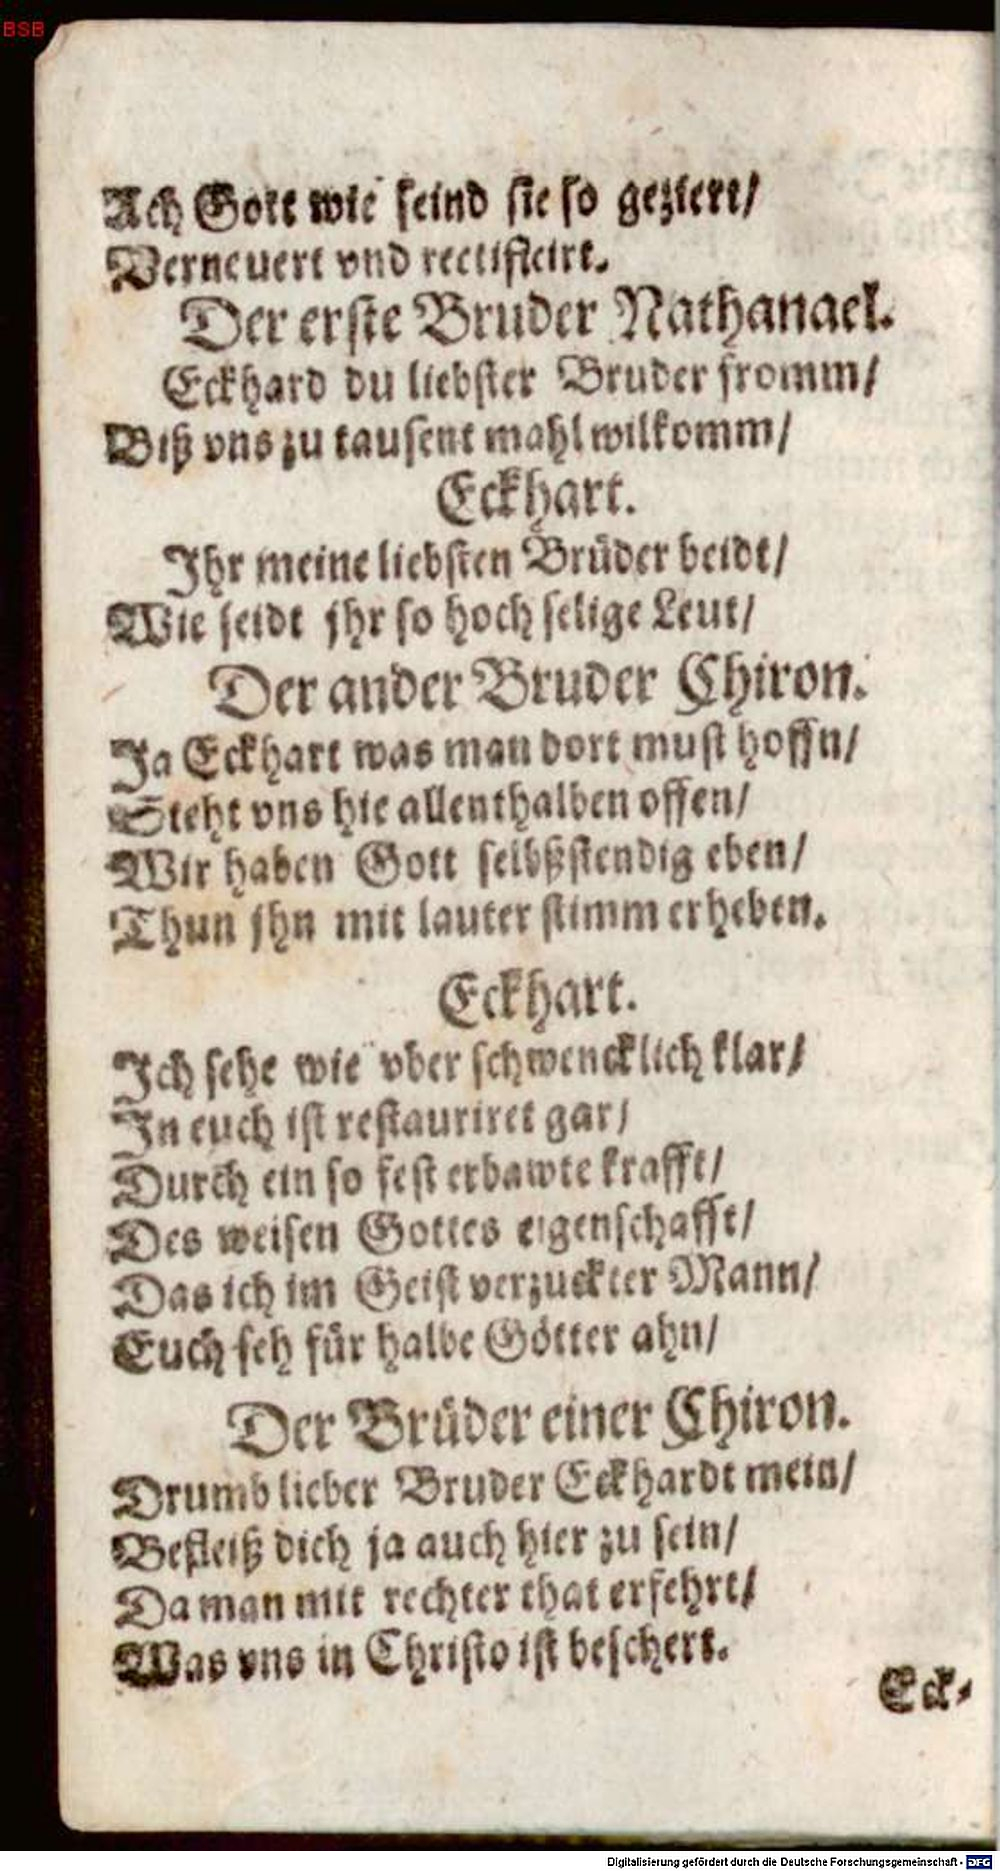 BSB
Ach Gott wie seind sie so geziert/
Verneuert vnd rectificirt.
Der erste Bruder Nathanael.
Eckhard du liebster Bruder fromm/
Biß vns zu tausent mahl wilkomm/
Eckhart.
Ihr meine liebsten Brüder beidt/
Wie seidt jhr so hoch selige Leut/
Der ander Bruder Chiron.
Ja Eckhart was man dort must hoffn/
Steht vns hie allenthalben offen/
Wir haben Gott selbßstendig eben/
Thun jhn mit lauter stimm erheben.
Eckhart.
Ich sehe wie vber schwencklich klar/
In euch ist restauriret gar/
Durch ein so fest erbawte krafft/
Des weisen Gottes eigenschafft/
Das ich im Geist verzuckter Mann/
Euch seh für halbe Götter ahn/
Der Brüder einer Chiron.
Drumb lieber Bruder Eckhardt mein/
Befleiß dich ja auch hier zu sein/
Da man mit rechter that erfehrt/
Was vns in Christo ist beschert.
Eck-
Digitalisierung gefördert durch die Deutsche Forschungsgemeinschaft - DFG